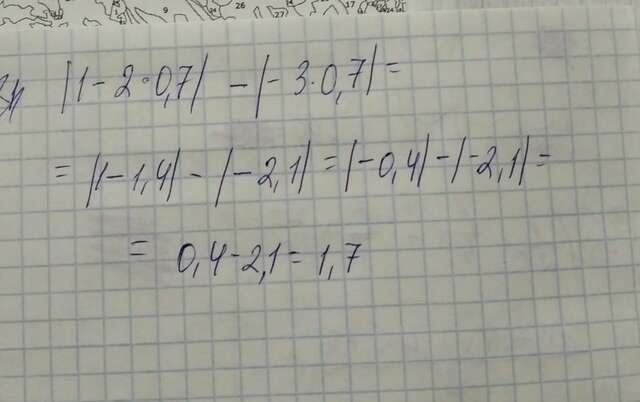 |1 - 2 · 0,7| - |- 3 · 0,7| =
= |1 - 1,4| - |- 2,1| = |- 0,4| - |- 2,1| =
= 0,4 - 2,1 = 1,7